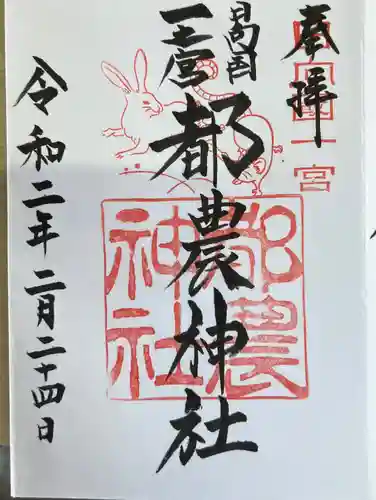 奉拝
日向国
一之宮
都農神社
令和二年二月二十四日
日向国一宮
都農神社